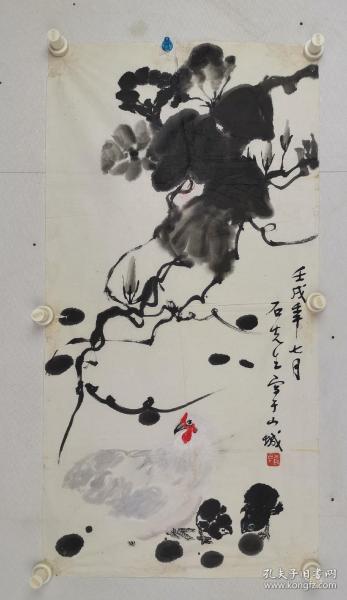 壬戌年七月
石先生写于山城
孔夫子旧书网
kongfz.com